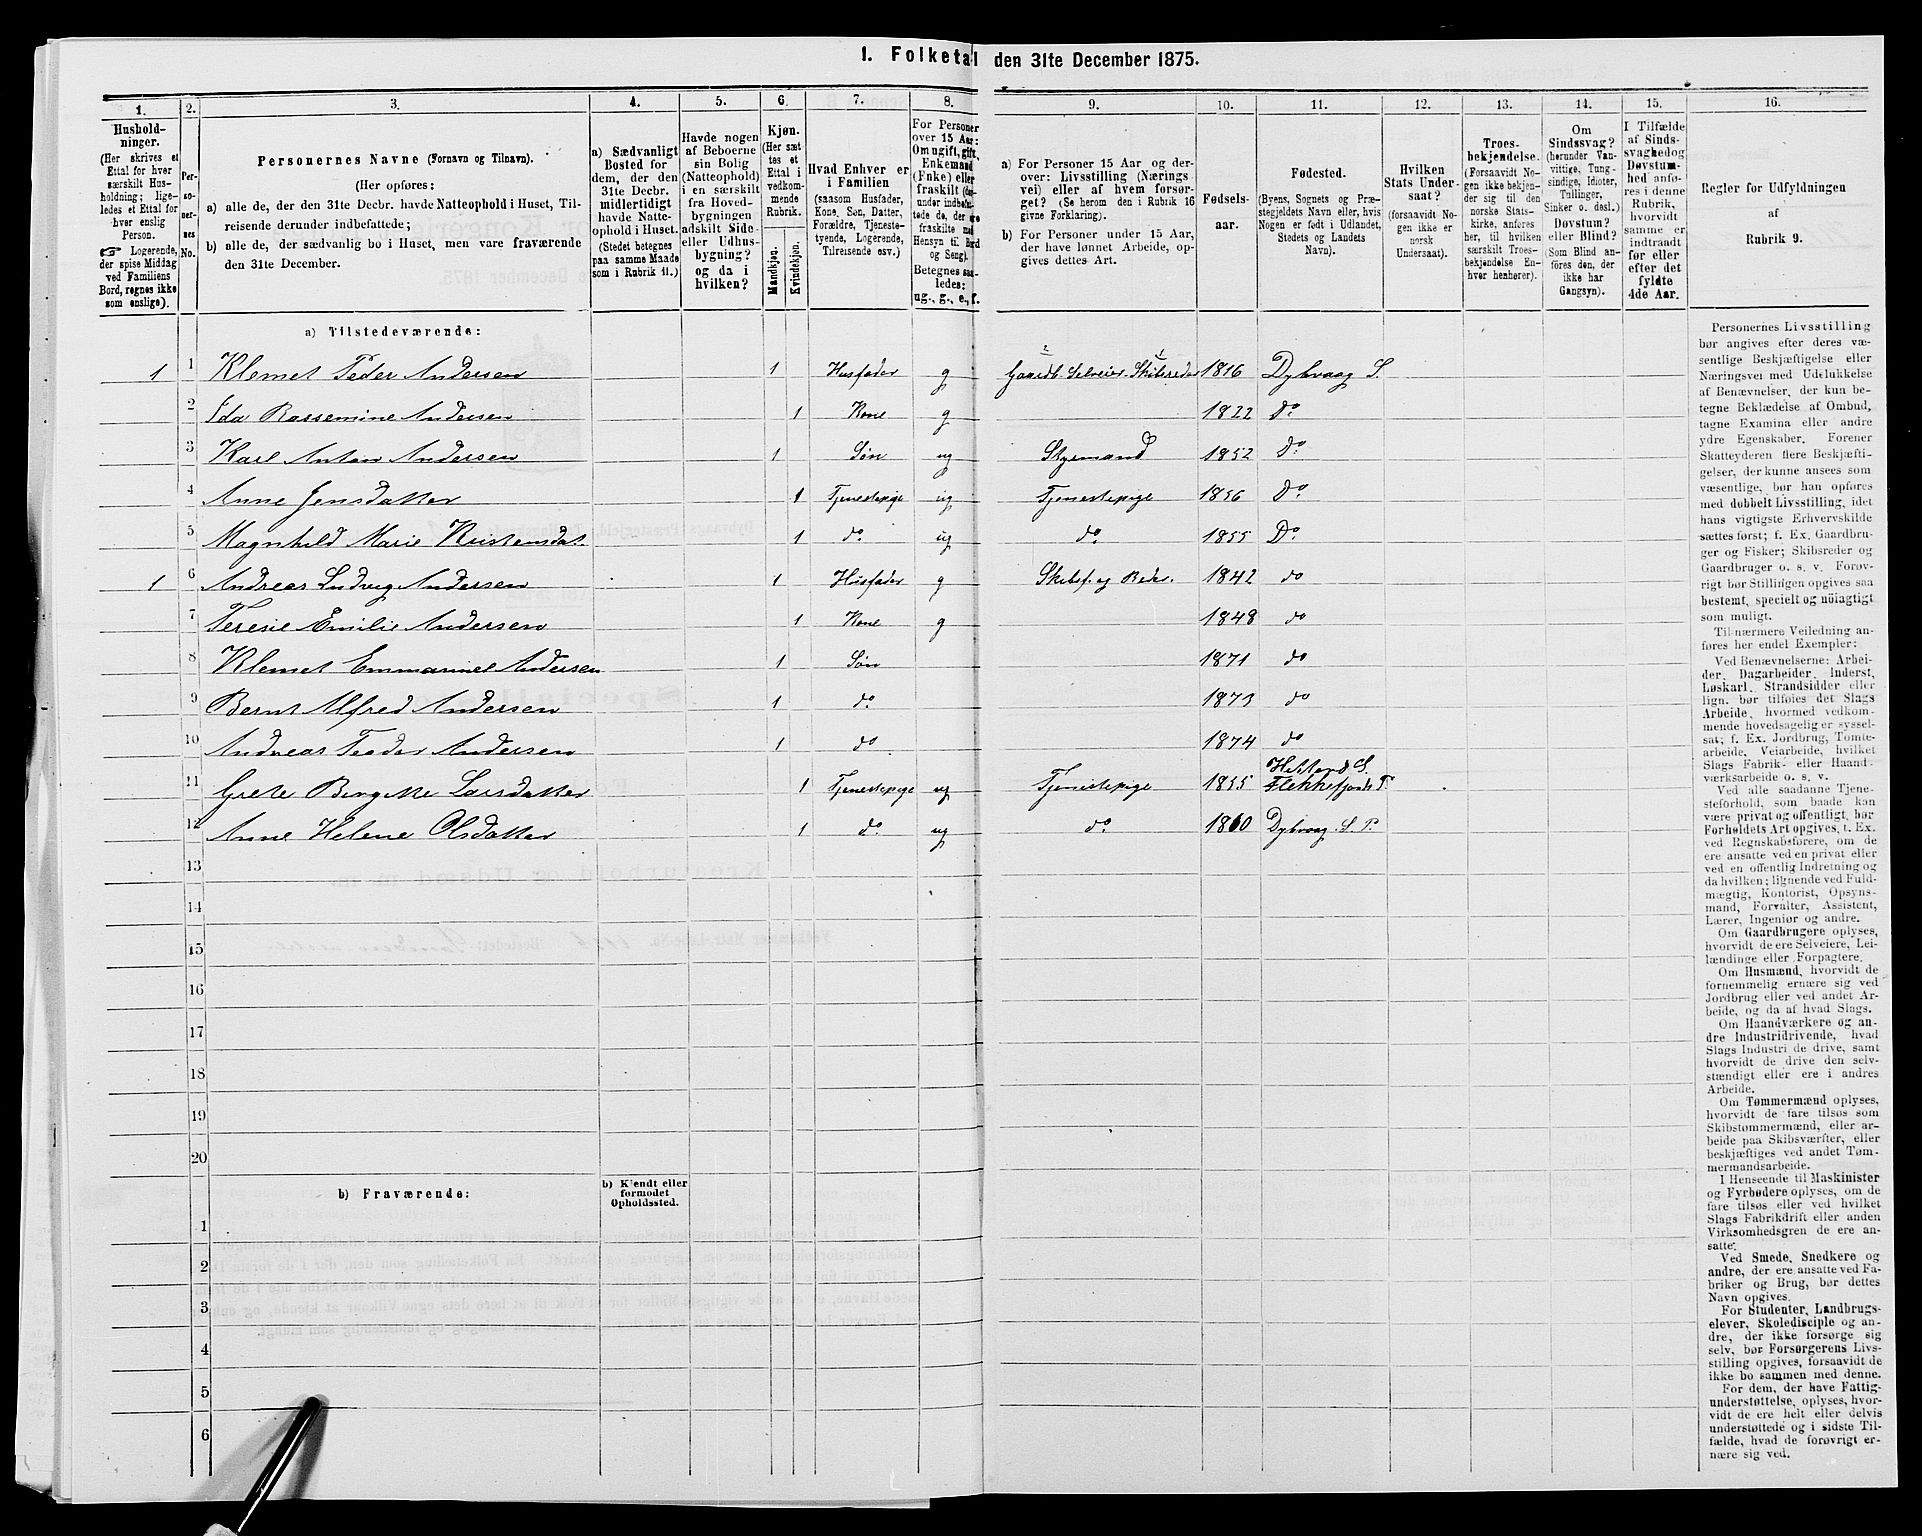 1. Folketal den 31te December 1875.
1. 2. 3. 4. 5. 6. 7. 8. 9. 10. 11. 12. 13. 14. 15. 16.
Hushold-
ninger.
(Her skrives et
Ettal for hver
særskilt Hus-
holdning; lige-
ledes et Ettal for
hver enslig
Person.
☞ Logerende,
der spise Middag
ved Familiens
Bord, regnes ikke
som enslige).
Per-
so-
ner-
nes
No.
Personernes Navne (Fornavn og Tilnavn).
(Her opføres:
a) alle de, der den 31te Decbr. havde Natteophold i Huset, Til-
reisende derunder indbefattede;
b) alle de, der sædvanlig bo i Huset, men vare fraværende
den 31te December.
a) Sædvanligt
Bosted for
dem, der den
31te Decbr.
midlertidigt
havde Natte-
ophold i Huset.
(Stedet betegnes
paa samme Maade
som i Rubrik 11.)
Havde nogen
af Beboerne
sin Bolig
(Natteophold)
i en særskilt
fra Hoved-
bygningen
adskilt Side-
eller Udhus-
bygning?
og da i
hvilken?
Kjøn.
(Her sæt
tes et
Ettal i
vedkom-
mende
Rubrik.
Mandkjøn.
Kvindekjøn.
Hvad Enhver er
i Familien
(saasom Husfader,
Kone, Søn, Datter,
Forældre, Tjeneste-
tyende, Logerende,
Tilreisende osv.)
For Personer
over 15 Aar:
Om ugift, gift,
Enkemand
(Enke) eller
fraskilt (der-
under indbefat-
tede de, der ere
fraskilte med
Hensyn til Bord
og Seng).
Betegnes saa-
ledes:
ug., g., e., f.
a) For Personer 15 Aar og der-
over: Livsstilling (Nærings-
vei) eller af hvem forsør-
get? (Se herom den i Rubrik 16
givne Forklaring).
b) For Personer under 15 Aar,
der have lønnet Arbeide, op-
gives dettes Art.
Fødsels-
aar.
Fødested.
(Byens, Sognets og Præ-
stegjeldets Navn eller, hvis
Nogen er født i Udlandet,
Stedets og Landets
Navn).
Hvilken
Stats Under-
saat?
(forsaavidt No-
gen ikke er
norsk
Undersaat).
Troes-
bekjendelse.
(Forsaavidt No-
gen ikke bekjen-
der sig til den
norske Stats-
kirke, anføres
her, til hvilken
særskilt Troes-
bekjendelse En-
hver henhører).
Om
Sindssvag?
(herunder Van-
vittige, Tung-
sindige, Idioter,
Tullinger,
Sinker o. desl.)
Døvstum?
eller Blind?
(Som Blind an-
føres den, der
ikke har
Gangsyn).
I Tilfælde
af Sinds-
svaghed og
Døvstum-
hed anfø-
res i denne
Rubrik,
hvorvidt
samme er
indtraadt
før eller
efter det
fyldte
4de Aar.
Regler for Udfyldningen
af
Rubrik 9.
a) Tilstedeværende:
1 1 Klemet Peder Andersen 1 Husfader g Gaardb. Selveier. Skibsreder 1816 Dybvaag S.
2 Ida Rassemine Andersen 1 Kone g 1822 do
3 Karl Anton Andersen 1 Søn ug Styrmand 1852 Do
4 Anne Jensdatter 1 Tjenestepige ug Tjenestepige 1856 Do
5 Magnhild Marie Kristensdat. 1 do ug do 1855 Do
1 6 Andreas Ludvig Andersen 1 Husfader g Skibsf. og Reder. 1842 do
7 Teresie Emilie Andersen 1 Kone g 1848 do
8 Klemet Emmanuel Andersen 1 Søn 1871 do
9 Bernt Alfred Andersen 1 do 1873 do
10 Andreas Teodor Andersen 1 do 1874 do
11 Grete Birgitte Larsdatter 1 Tjenestepige ug Tjenestepige 1855 Flekkefjords P.
12 Anne Helene Olsdatter 1 do ug do 1860 Dybvaag S. P.
13
14
15
16
17
18
19
20
b) Fraværende:
b) Kjendt eller
formodet
Opholdssted.
1
2
3
4
5
6
Personernes Livsstilling
bør angives efter deres væ-
sentlige Beskjæftigelse eller
Næringsvei med Udelukkelse
af Benævnelser, der kun be-
tegne Beklædelse af Ombud,
tagne Examina eller andre
ydre Egenskaber. Forener
Skatteyderen flere Beskjæfti-
gelser, der kunne ansees som
væsentlige, bør han opføres
med dobbelt Livsstilling, idet
hans vigtigste Erhvervskilde
sættes først; f. Ex. Gaardbru-
ger og Fisker; Skibsreder og
Gaardbruger o. s. v. Forøv-
rigt bør Stillingen opgives saa
bestemt, specielt og nöiagtigt
som muligt.
Til nærmere Veiledning an-
føres her endel Exempler:
Ved Benævnelserne: Arbei-
der, Dagarbeider, Inderst,
Løskarl, Strandsidder eller
lign. bør tilføies det Slags
Arbeide, hvormed vedkom-
mende hovedsagelig er syssel-
sat; f. Ex. Jordbrug, Tomte-
arbeide, Veiarbeide, hvilket
Slags Fabrik- eller Haand-
værksarbeide o. s. v.
Ved alle saadanne Tjene-
steforhold, som baade kan
være privat og offentligt, bør
Forholdets Art opgives, t. Ex.
ved Regnskabsførere, om de
ere ansatte ved en privat eller
ved en offentlig Indretning og
da hvilken; lignende ved Fuld-
mægtig, Kontorist, Opsyns-
mand, Forvalter, Assistent,
Lærer, Ingeniør og andre.
Om Gaardbrugere oplyses,
hvorvidt de ere Selveiere, Lei-
lændinge eller Forpagtere.
Om Husmænd, hvorvidt de
fornemmelig ernære sig ved
Jordbrug eller ved andet Ar-
beide, og da af hvad Slags.
Om Haandværkere og an-
dre Industridrivende, hvad
Slags Industri de drive, samt
hvorvidt de drive den selv-
stændigt eller ere i andres
Arbeide.
Om Tømmermænd oplyses,
hvorvidt de fare tilsøs som
Skibstømmermænd, eller ar-
beide paa Skibsværfter, eller
beskjæftiges ved andet Tøm-
mermandsarbeide.
I Henseende til Maskinister
og Fyrbødere oplyses, om de
fare tilsøs eller ved hvilket
Slags Fabrikdrift eller anden
Virksomhedsgren de ere an-
satte.
Ved Smede, Snedkere og
andre, der ere ansatte ved Fa-
briker og Brug, bør dettes
Navn opgives.
For Studenter, Landbrugs-
elever, Skoledisciple og an-
dre, der ikke forsørge sig
selv, bør Forsørgerens Livs-
stilling opgives, forsaavidt de
ikke bo sammen med denne.
For dem, der have Fattig-
understøttelse, oplyses, hvor-
vidt de ere helt eller delvis
understøttede og i sidste Til-
fælde, hvad de forøvrigt er-
nære sig ved.